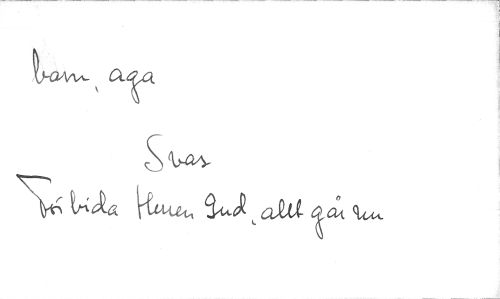 barn, aga
Svar
Förbida Herren Gud, allt går um